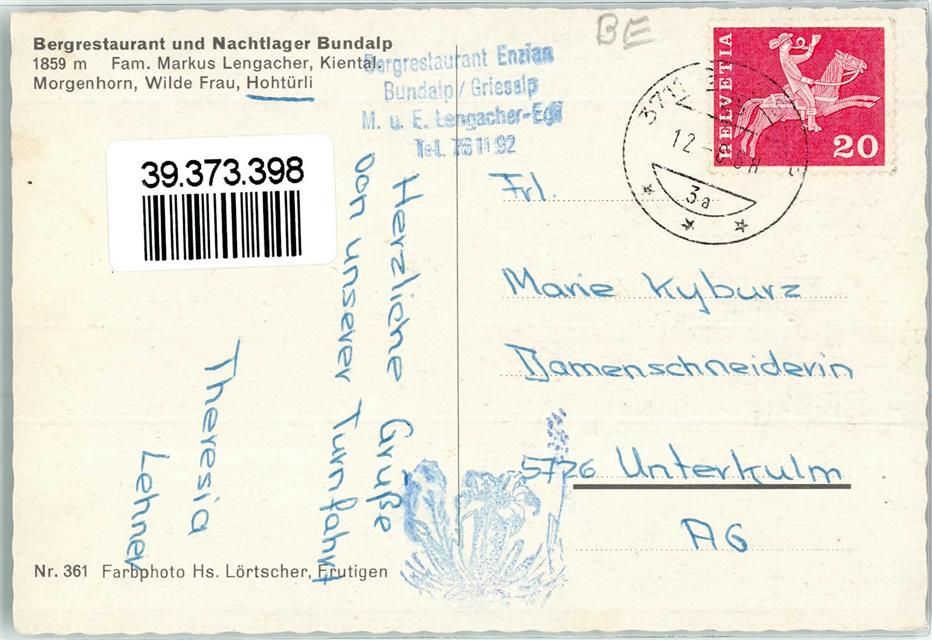 Bergrestaurant und Nachtlager Bundalp
1859 m Fam. Markus Lengacher, Kiental.
Morgenhorn, Wilde Frau, Hohtürli
Bergrestaurant Enzian
Bundalp/Griesalp
M. u. E. Lengacher-Egli
Tel. 76 11 92
BE
HELVETIA
20
12
3a
39.373.398
Herzliche Grüße
von unserer Turnfahrt
Theresia
Lehner
Frl.
Marie Kyburz
Damenschneiderin
5726 Unterkulm
AG
Nr. 361 Farbphoto Hs. Lörtscher, Frutigen